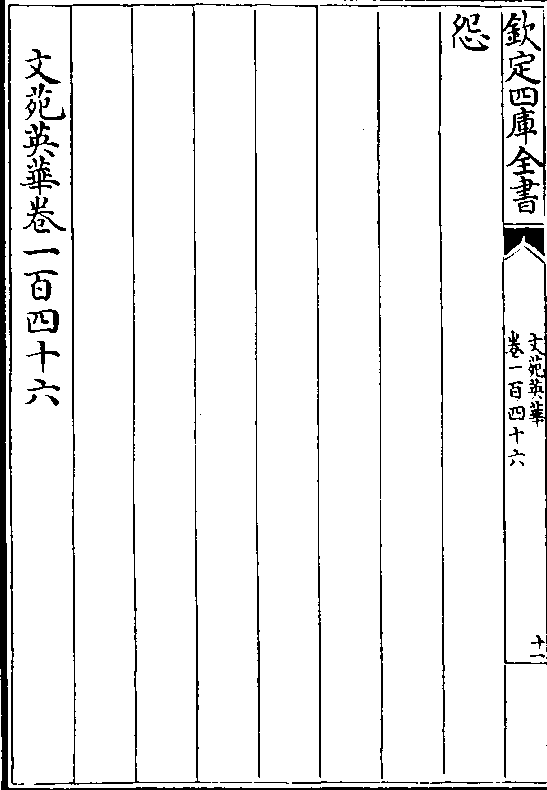 欽定四庫全書
文苑英華
卷一百四十六
十一
怨
文苑英華卷一百四十六